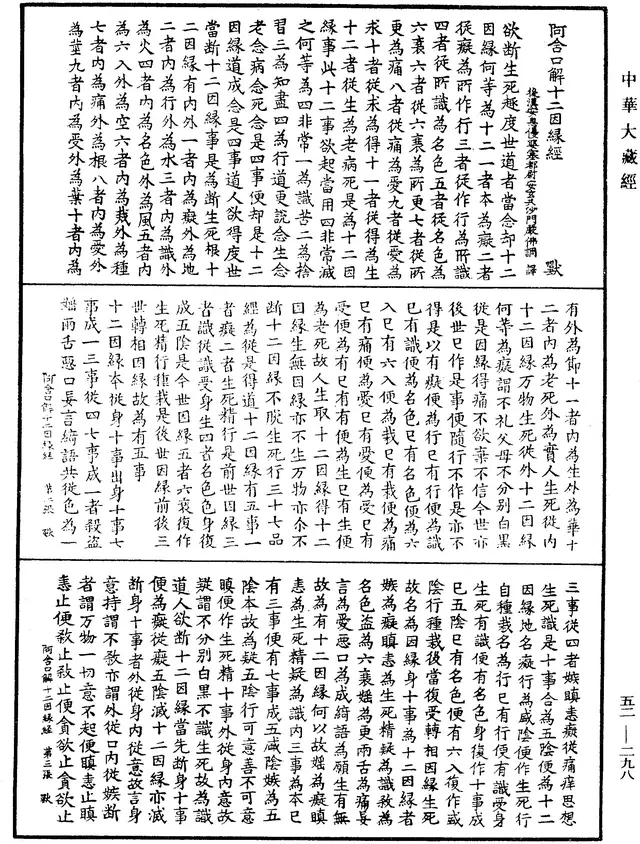 中華大藏經
五二—二九八
阿含口解十二因緣經 歎
後漢安息優婆塞都尉安玄共沙門嚴佛調譯
欲斷生死趣度世道者當念却十二
因緣何等為十二一者本為癡二者
從癡為所作行三者從作行為所識
四者從所識為名色五者從名色為
六衰六者從六衰為所更七者從所
更為痛八者從痛為愛九者從愛為
求十者從求為得十一者從得為生
十二者從生為老病死是為十二因
緣事此十二事欲起當用四非常滅
之何等為四非常一為識苦二為捨
習三為知盡四為行道更說念生念
老念病念死念是四事便却是十二
因緣道成念是四事道人欲得度世
當斷十二因緣事是為斷生死根十
二因緣有內外一者內為癡外為地
二者內為行外為水三者內為識外
為火四者內為名色外為風五者內
為六入外為空六者內為栽外為種
七者內為痛外為根八者內為愛外
為莖九者內為受外為葉十者內為
有外為節十一者內為生外為華十
二者內為老死外為實人生死從內
十二因緣万物生死從外十二因緣
何等為癡謂不礼父母不分別白黑
從是因緣得痛不欲棄不信今世亦
後世已作是事便隨行不作是亦不
得是以有癡便為行已有行便為識
已有識便為名色已有名色便為六
入已有六入便為栽已有栽便為痛
已有痛便為愛已有愛便為受已有
受便為有已有有便為生已有生便
為老死故人生取十二因緣得十二
因緣生無因緣亦不生万物亦尒不
斷十二因緣不脫生死行三十七品
經為從是得道十二因緣有五事一
者癡二者生死精行是前世因緣三
者識從識受身生四者名色色身復
成五陰是今世因緣五者六衰復作
生死精行種栽是後世因緣前後三
世轉相因緣故為有五事
十二因緣本從身十事出身十事七
事成一三事從四七事成一者殺盜
婬兩舌惡口妄言綺語共從色為一
阿含口解十二因緣經 第二張 歎
三事從四者嫉瞋恚癡從痛痒思想
生死識是十事合為五陰便為十二
因緣地名癡行為咸陰便作生死行
自種栽名為行已有行便有識受身
生死有識便有名色身復作十事成
已五陰已有名色便有六入復作咸
陰行種栽後當復受轉相因緣生死
故名為因緣身十事為十二因緣者
嫉為癡瞋恚為生死精疑為識殺為
名色盜為六衰婬為更兩舌為痛妄
言為愛惡口為成綺語為願生有無
故為有十二因緣何以故婬為癡瞋
恚為生死精疑為識內三事為本已
有三事便有七事成五咸陰嫉為五
陰本故為疑五陰行可意善不可意
瞋便作生死精十事外從身內意故
疑謂不分別白黑不識生死故為識
道人欲斷十二因緣當先斷身十事
便為癡從癡五陰滅十二因緣亦滅
斷身十事者外從身內從意故言身
意持謂不殺亦謂外從口內從嫉斷
者謂万物一切意不起便瞋恚止瞋
恚止便殺止殺止便貪欲止貪欲止
阿含口解十二因緣經 第三張 歎